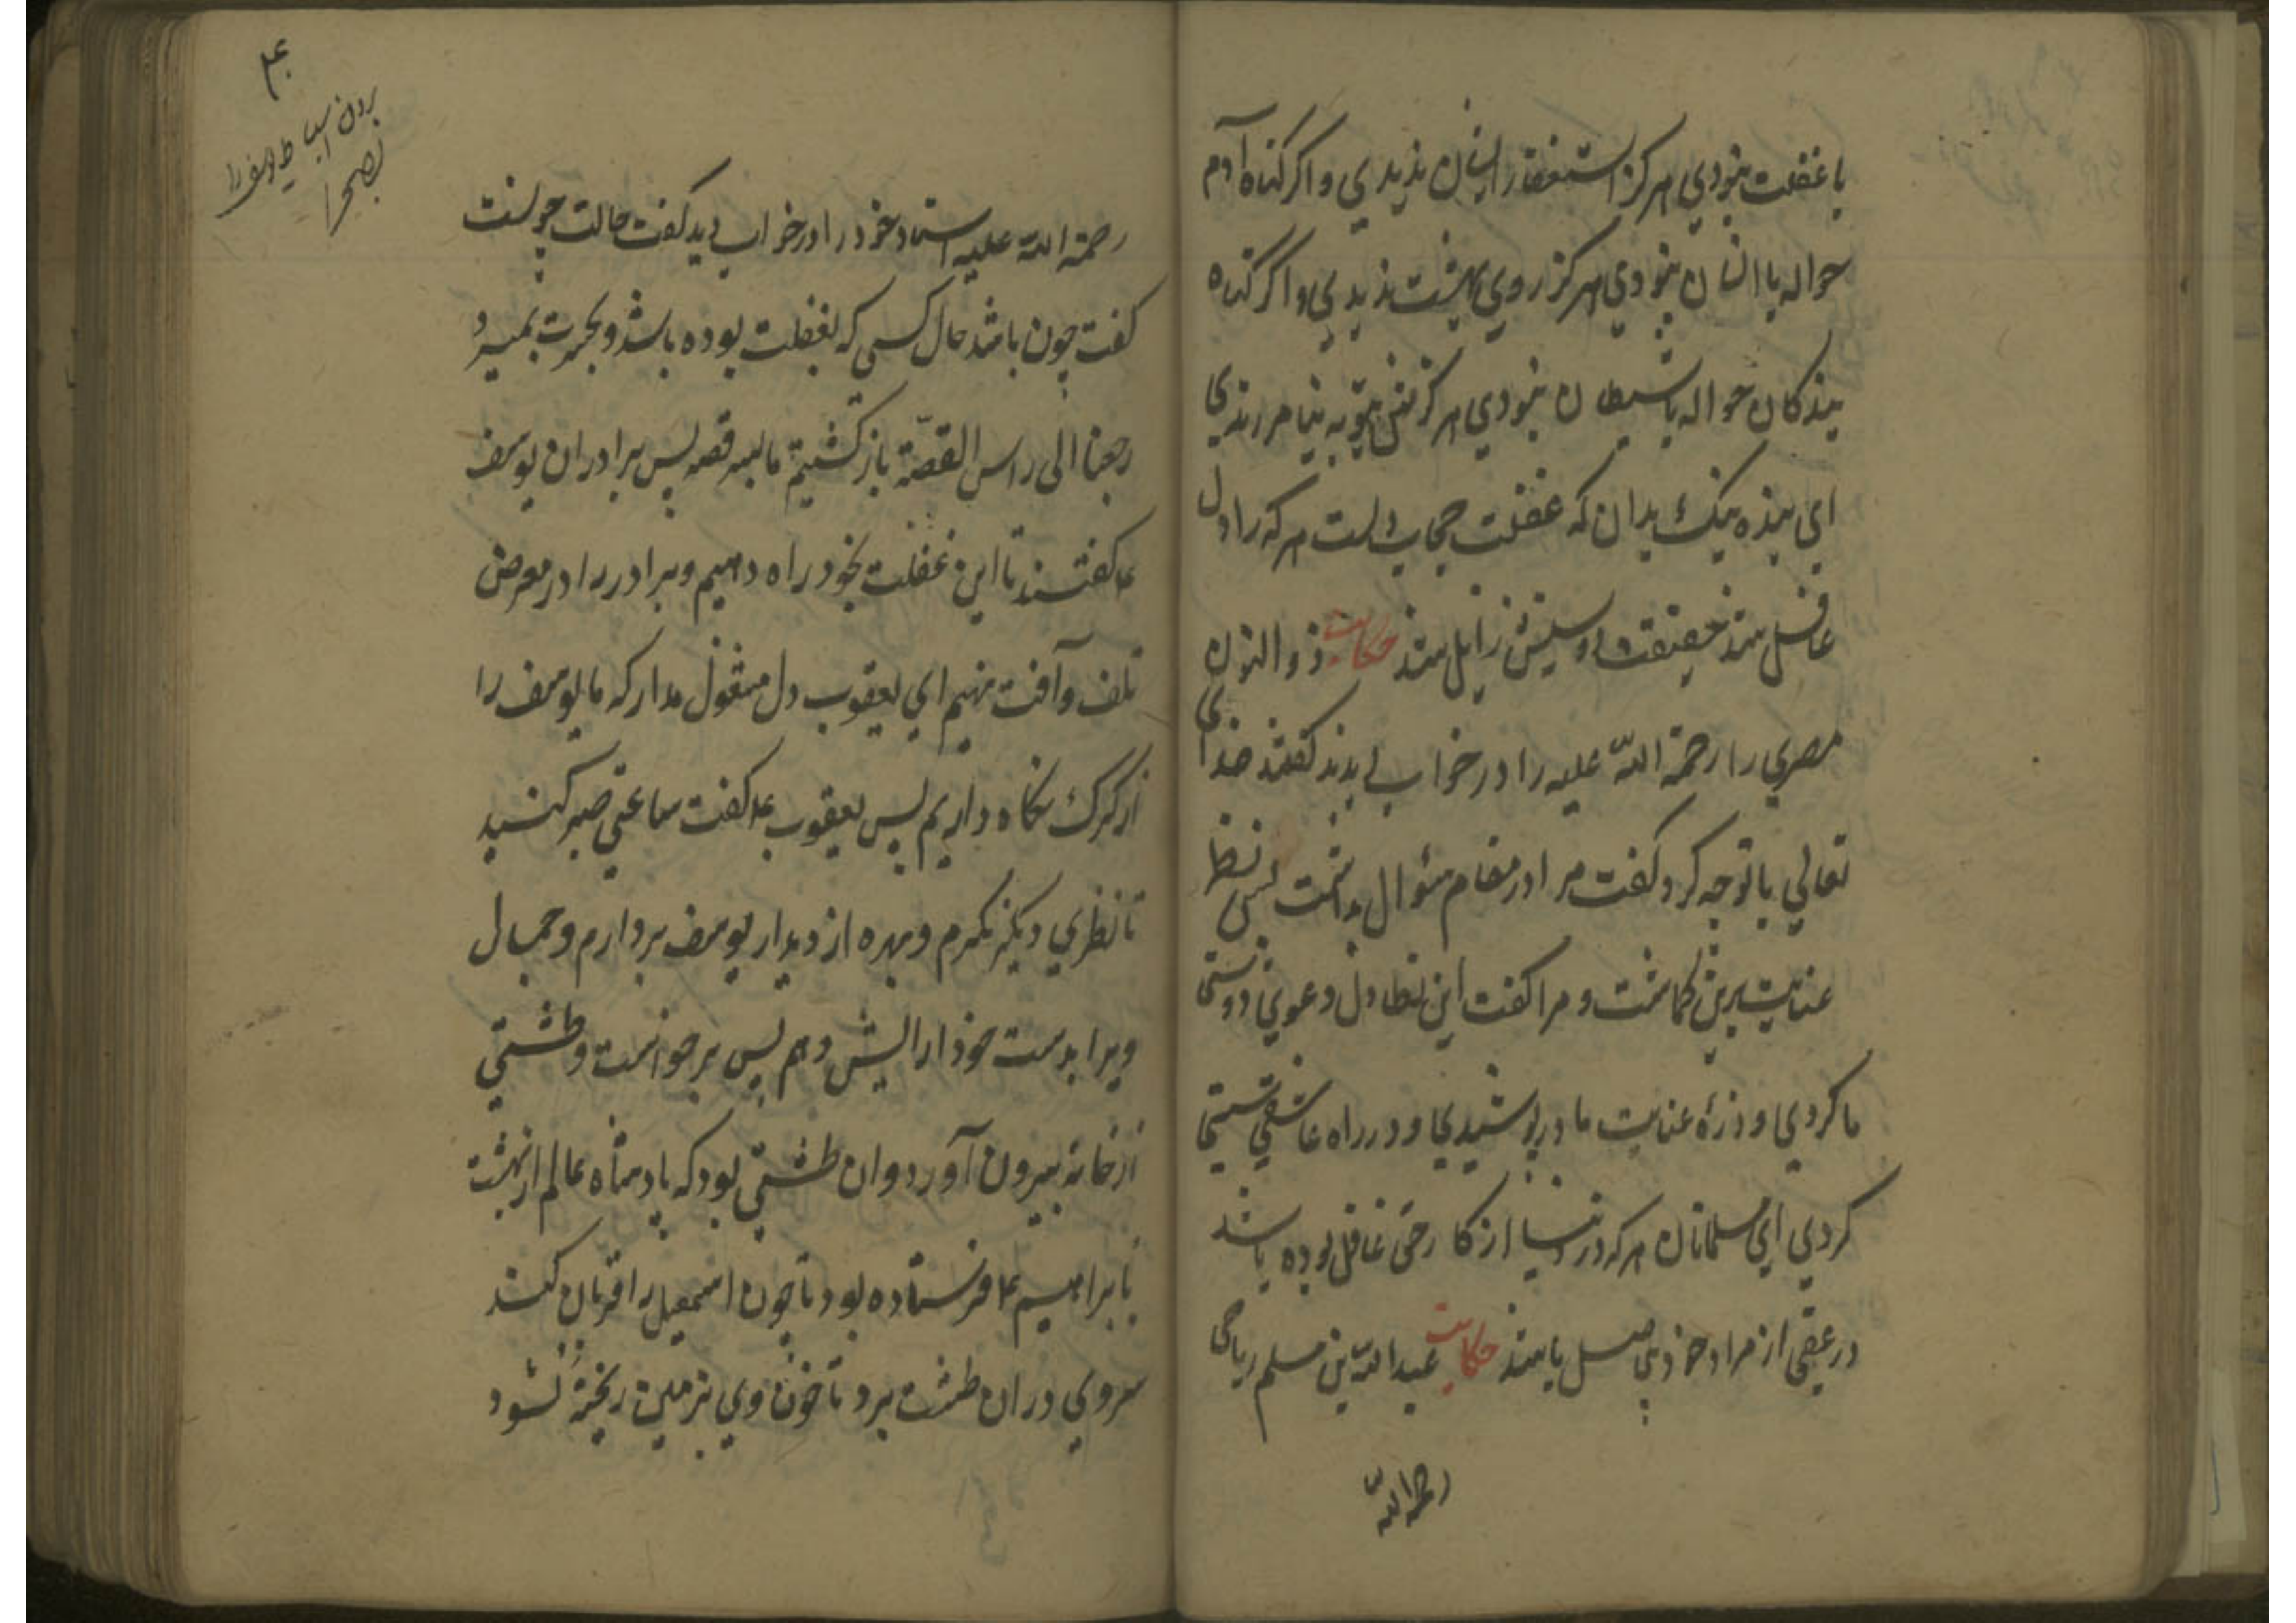 با غفلت نبودي هركز استغفار ايشان نديدي و اكر كناه آدم
حواله با انسان نبودي هركز روي بهشت نديدي و اكر كناه
بندكان حواله با شيطان نبودي هركز بتوبه نيامرزيدي
اي بنده نيك بدان كه غفلت حجاب دلست هر كه را دل
غافل شد حقيقت از وي زايل شد حكايت ذو النون
مصري را رحمة اللّه عليه را در خواب ديدند كفتند خداي
تعالي با تو چه كرد كفت مرا در مقام سئوال بداشت پس نظر
عنايت برمن كماشت و مرا كفت اين دعوي دوستي
ما كردي و زرهٔ عنايت ما درپوشيدي و در راه عاشقي سستي
كردي اي مسلمانان هر كه در دنيا از كار حق غافل بوده باشد
در عقبي از مراد خود باشد حكايت عبد اللّه بن مسلم رياحي
رحمة اللّه
۴۰
بردن اسباط يوسف را
بصحرا
رحمة اللّه عليه استاد خود را در خواب ديد كفت حالت چونست
كفت چون باشد حال كسي كه بغفلت بوده باشد و بحيرت بميرد
رجعنا الى راس القصّة باز كشتيم ما بسر قصه پس برادران يوسف
ع كفتند تا اين غفلت بخود راه دهيم و برادر را در معرض
تلف و آفت نهيم اي يعقوب دل مشغول مدار كه ما يوسف را
از كرك نكاه داريم پس يعقوب ع كفت ساعتي صبر كنيد
تا نظري ديكر نكرم و بهره از ديدار يوسف بردارم و جمال
ويرا بدست خود ارايش دهم پس برخواست و طشتي
از خانه بيرون آورد و ان طشتي بود كه پادشاه عالم از بهشت
بابراهيم ع فرستاده بود تا چون اسمعيل را قربان كند
سر وي در ان طشت برد تا خون وي بزمين ريخته نشود